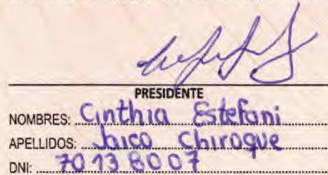 PRESIDENTE
NOMBRES: Cinthia Estefani
APELLIDOS: Jaico Chiroque
DNI: 70138007